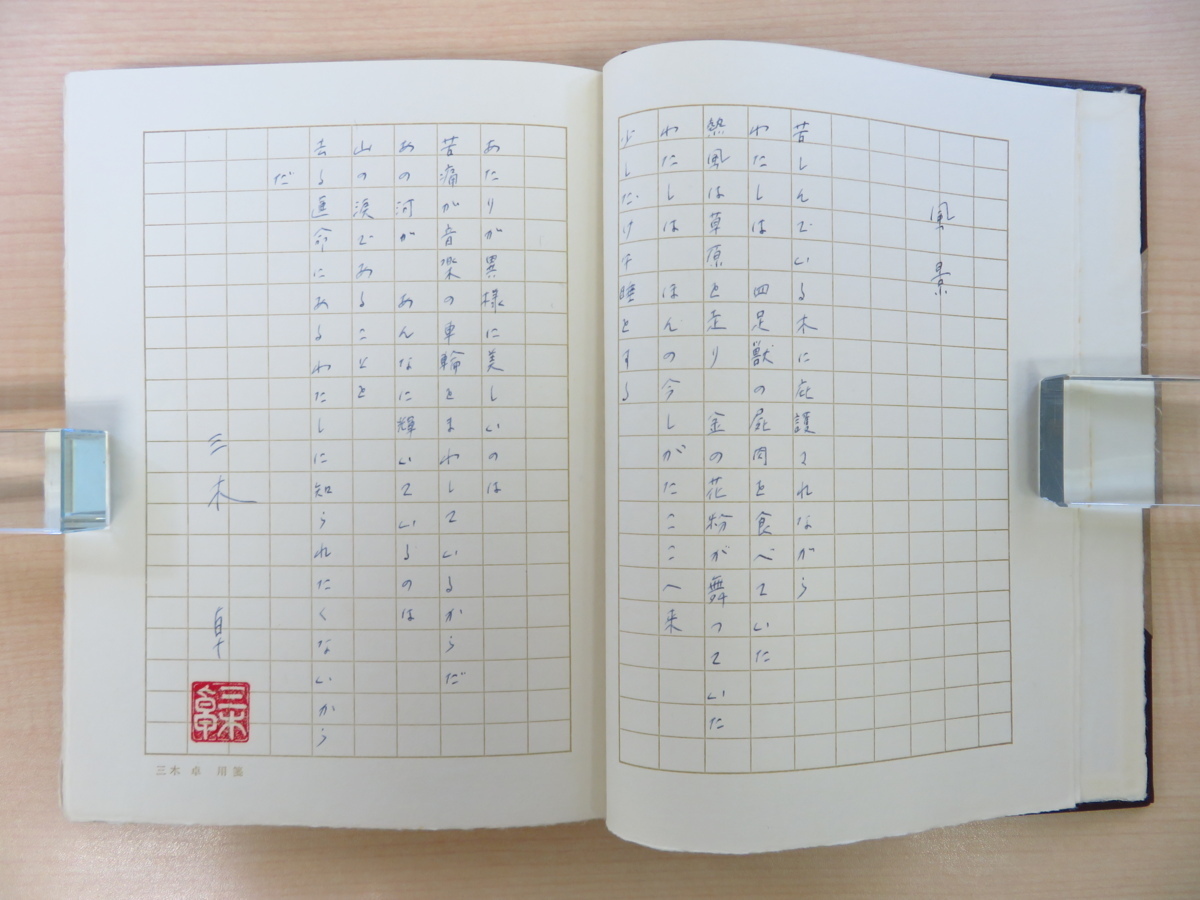 風景
苦しんでいる木に庇護されながら
わたしは　四足獣の屍肉を食べていた
熱風は草原を走り　金の花粉が舞っていた
わたしは　ほんの今しがたここへ来
少しだけ午睡をする
あたりが異様に美しいのは
苦痛が音楽の車輪をまわしているからだ
あの河が　あんなに輝いているのは
山の涙であることを
去る運命にあるわたしに知られたくないから
だ
三木　卓
三木卓
三木卓　用箋